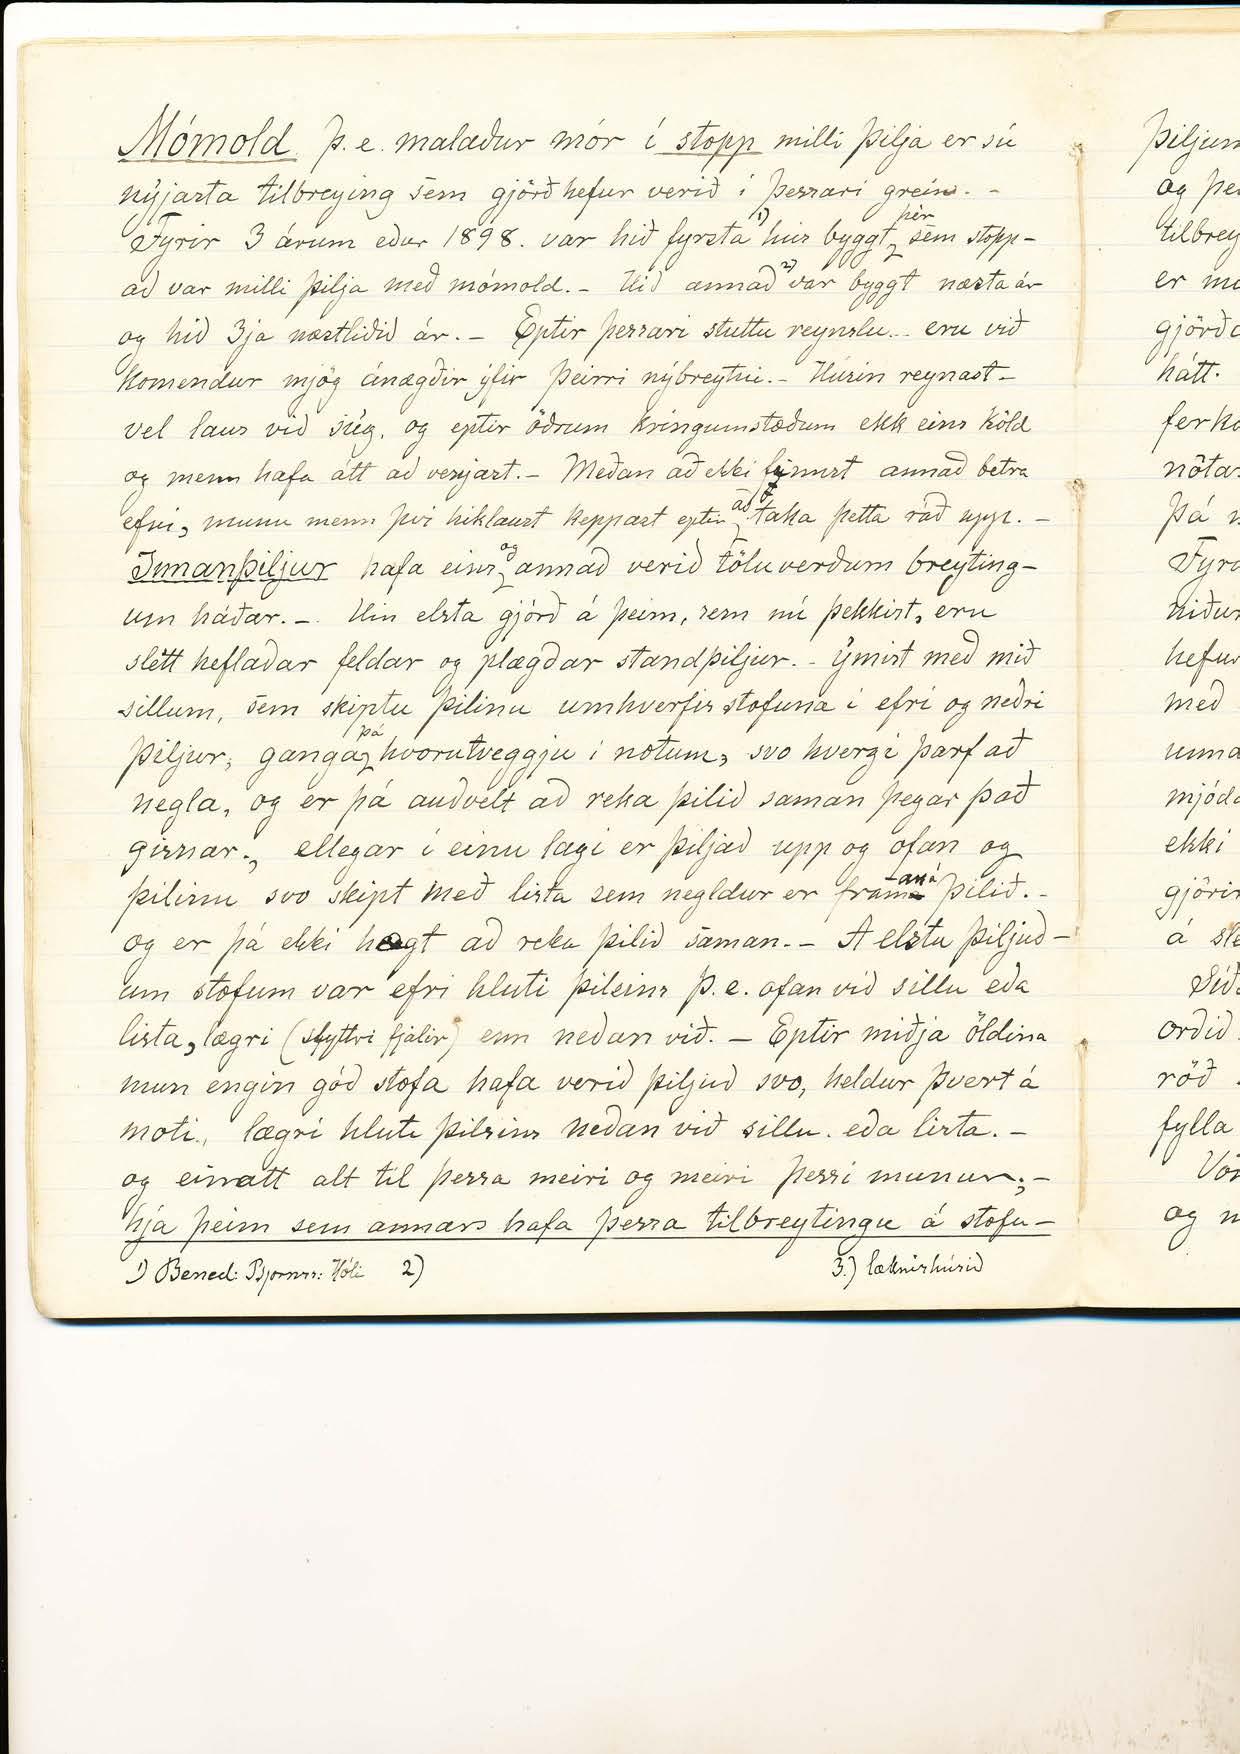 Mómold þ.e. malaður mór í stopp milli þilja er sú
nýjasta tilbreying sem gjörð hefur verið i þessari grein. -
Fyrir 3 árum eður 1898. var hið fyrsta 1) hús byggt hér sem stopp-
að var milli þilja með mómold. - Hið annað 2) var byggt næsta ár
og hið 3ja næstliðið ár. - Eptir þessari stuttu reynslu - eru við
komendur mjög ánægðir ýfir þeirri nýbreytni. - Húsin reynast -
vel laus við súg, og eptir öðrum kringumstæðum ekk eins köld
og menn hafa átt að venjast. - Meðan að ekki finnst annað betra
efni, munu menn því hiklaust keppast eptir að taka þetta ráð upp. -
Innanþiljur hafa eins og annað verið töluverðum breyting-
um háðar. - Hin elsta gjörð á þeim, sem nú þekkist, eru
slétt heflaðar feldar og plægðar standþiljur. - ýmist með mið
sillum, sem skiptu þilinu umhverfis stofuna í efri og neðri
þiljur, ganga þá hvorutveggju i nótum, svo hvergi þarf að
negla, og er þá auðvelt að reka þilið saman þegar það
gisnar., ellegar í einu lagi er þiljað upp og ofan og
þilinu svo skipt með lista sem negldur er framaná þilið. -
og er þá ekki hægt að reka þilið saman. - A elstu þiljuð-
um stofum var efri hluti þilsins þ.e. ofan við sillu eða
lista, lægri (styttri fjalir) enn neðan við. - Eptir miðja öldina
mun engin góð stofa hafa verið þiljuð svo, heldur þvert á
moti, lægri hluti þilsins neðan við sillu. eða lista. -
og einatt alt til þessa meiri og meiri þessi munur, -
hjá þeim sem annars hafa þessa tilbreytingu á stofu-
1) Bened: Bjornss: Hóli 2) 3.) læknishúsið
þiljum
og þe
tilbrey
er m
gjörð
hátt.
ferk
nóta
Þá
Fyr
niður
hefur
með
unna
mjóda
ekki
gjörir
á sl
Síð
orðið
röð
fylla
Vö
og n